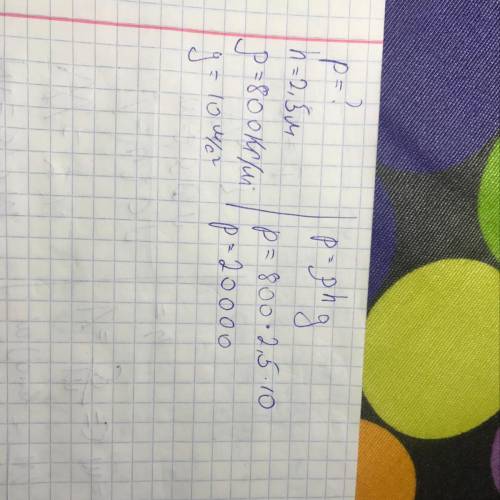 p=?
h=2,5м
ρ=800кг/м³
g=10м/с²
p=ρhg
p=800·2,5·10
p=20000